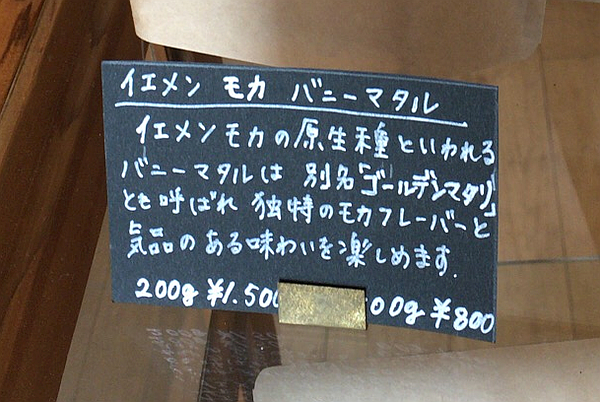 イエメン モカ バニーマタル
イエメンモカの原生種といわれる
バニーマタルは 別名「ゴールデンマタリ」
とも呼ばれ 独特のモカフレーバーと
気品のある味わいを楽しめます.
200g ¥1.500 00g ¥800